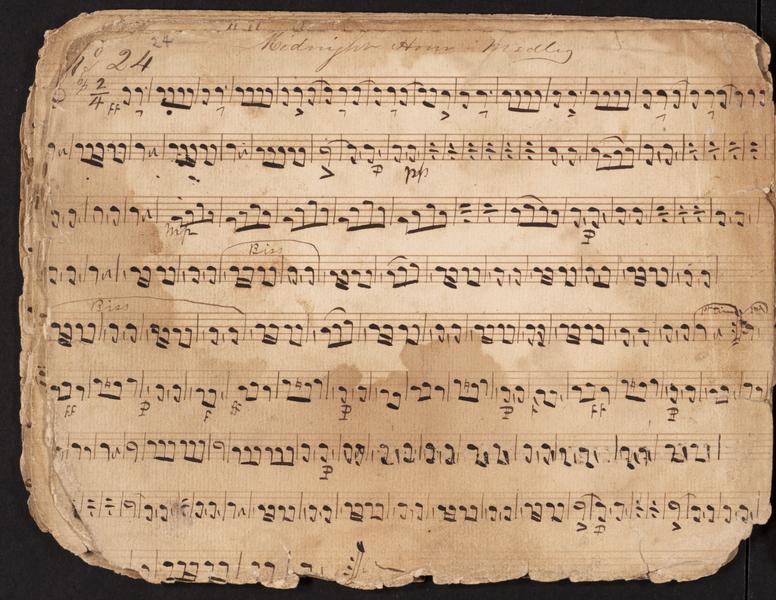 No 24 24 Midnight Hour Medley
2/4 ff
p pp
mp p
Biss
Biss
ff p f ff p p f ff p
p
p